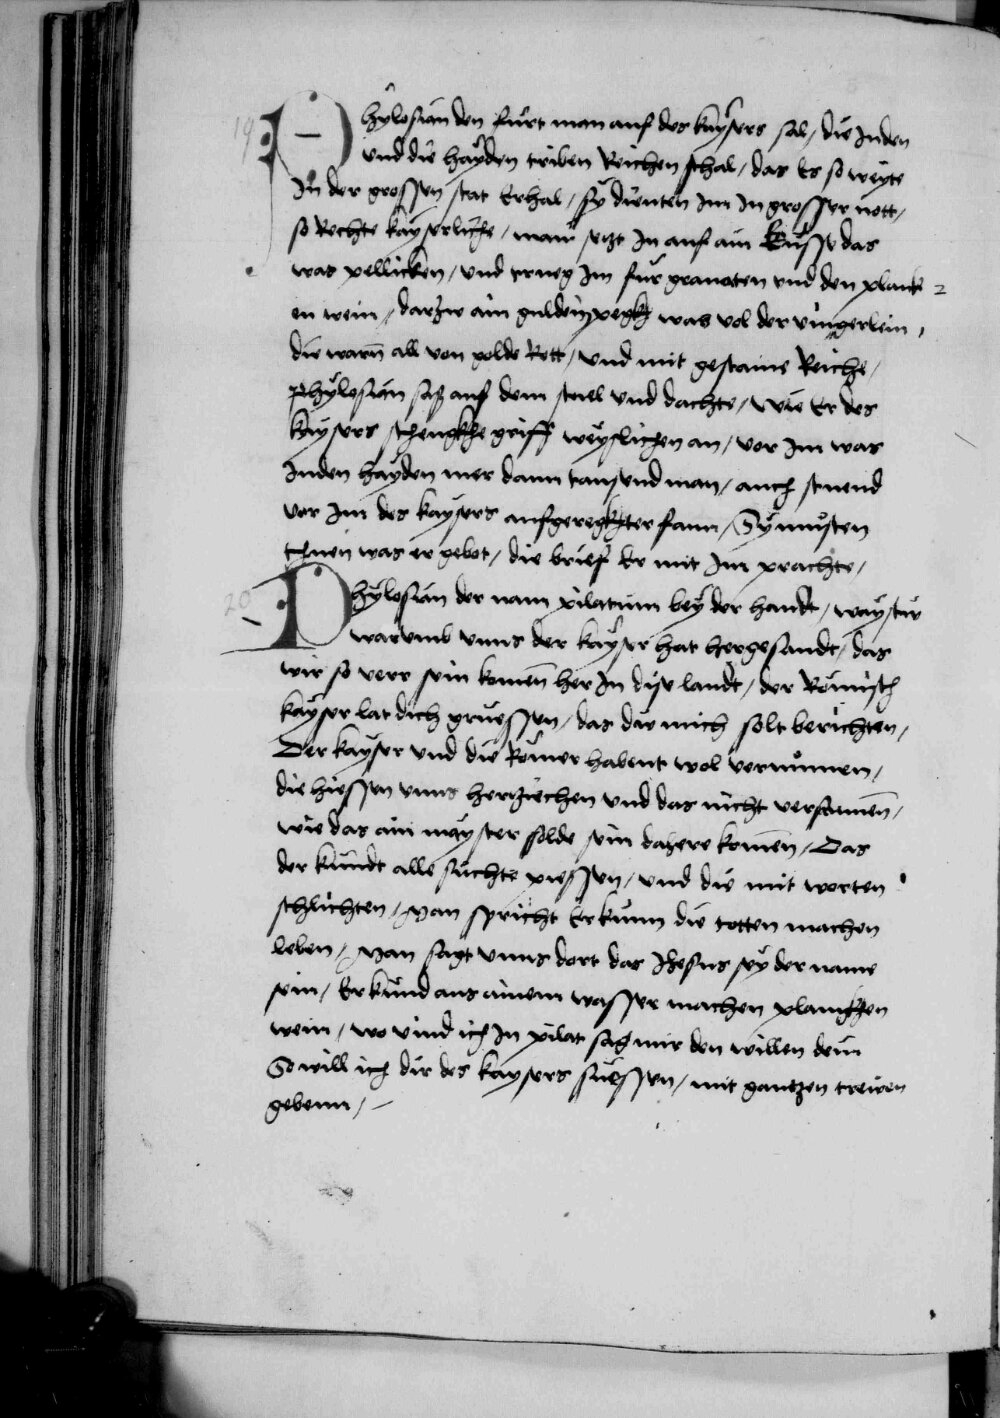 19
Phÿlosian den fürt man auf des kaÿsers sal / die Juden
und die haÿden triben Reichen schal / das Es so weÿte
In der grossen stat Erhal / sÿ dienten Im In grosser nött /
so Rechte kaÿserliche / man setzt In auf ain küsse das
was pellicken / und trueg Im für granaten und den plank=
en wein / darzw ain gulden pegkh was vol der vingerlein /
die warn all von golde Rott / und mit gestaine Reiche /
Phÿlosian saß auf dem stuel und dachte / wie Er des
kaÿsers schengkhe griff weÿslichen an / vor Im was
Juden haÿden mer dann tausend man / auch stuend
vor Im des kaÿsers aufgeregkhter fann / Sÿ muosten
thuen was er gebot / die brief Er mit Im prachte /
20
Phÿlosian der nam pilatum beÿ der handt / waÿstu
warumb unns der kaÿser hat hergesandt / das
wir so verr sein komen her In dise landt / der Römisch
kaÿser lat dich gruessen / das du mich solt berichten /
Der kaÿser und die Römer habent wol vernumen /
die hiessen unns herziechen und das nicht versaumen /
wie das ain maÿster solde sein dahere komen / Das
der kundt alle suchte puessen / und die mit worten
schlichten / Man spricht Er kunn die totten machen
leben / Man sagt unns dort das Jhesus seÿ der name
sein / Er kund aus ainem wasser machen plangkhen
wein / wo vind ich In pilat sag mir den willen dein
So will ich dir des kaysers suessen / mit gantzen treuen
gebenn /